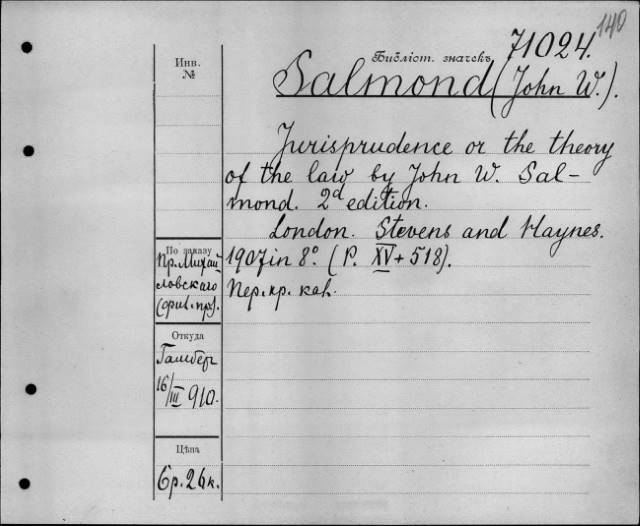 140
71024.
Библіот. значекъ
Инв.
№
Salmond (John W.).
Jurisprudence or the theory
of the law by John W. Sal-
mond. 2d edition.
London. Stevens and Haynes.
1907 in 8°. (P. XV + 518).
Пер. кр. кал.
По заказу
пр. Михай
ловскаго
Откуда
Гамбер
16/III 910.
Цѣна
6р. 24к.